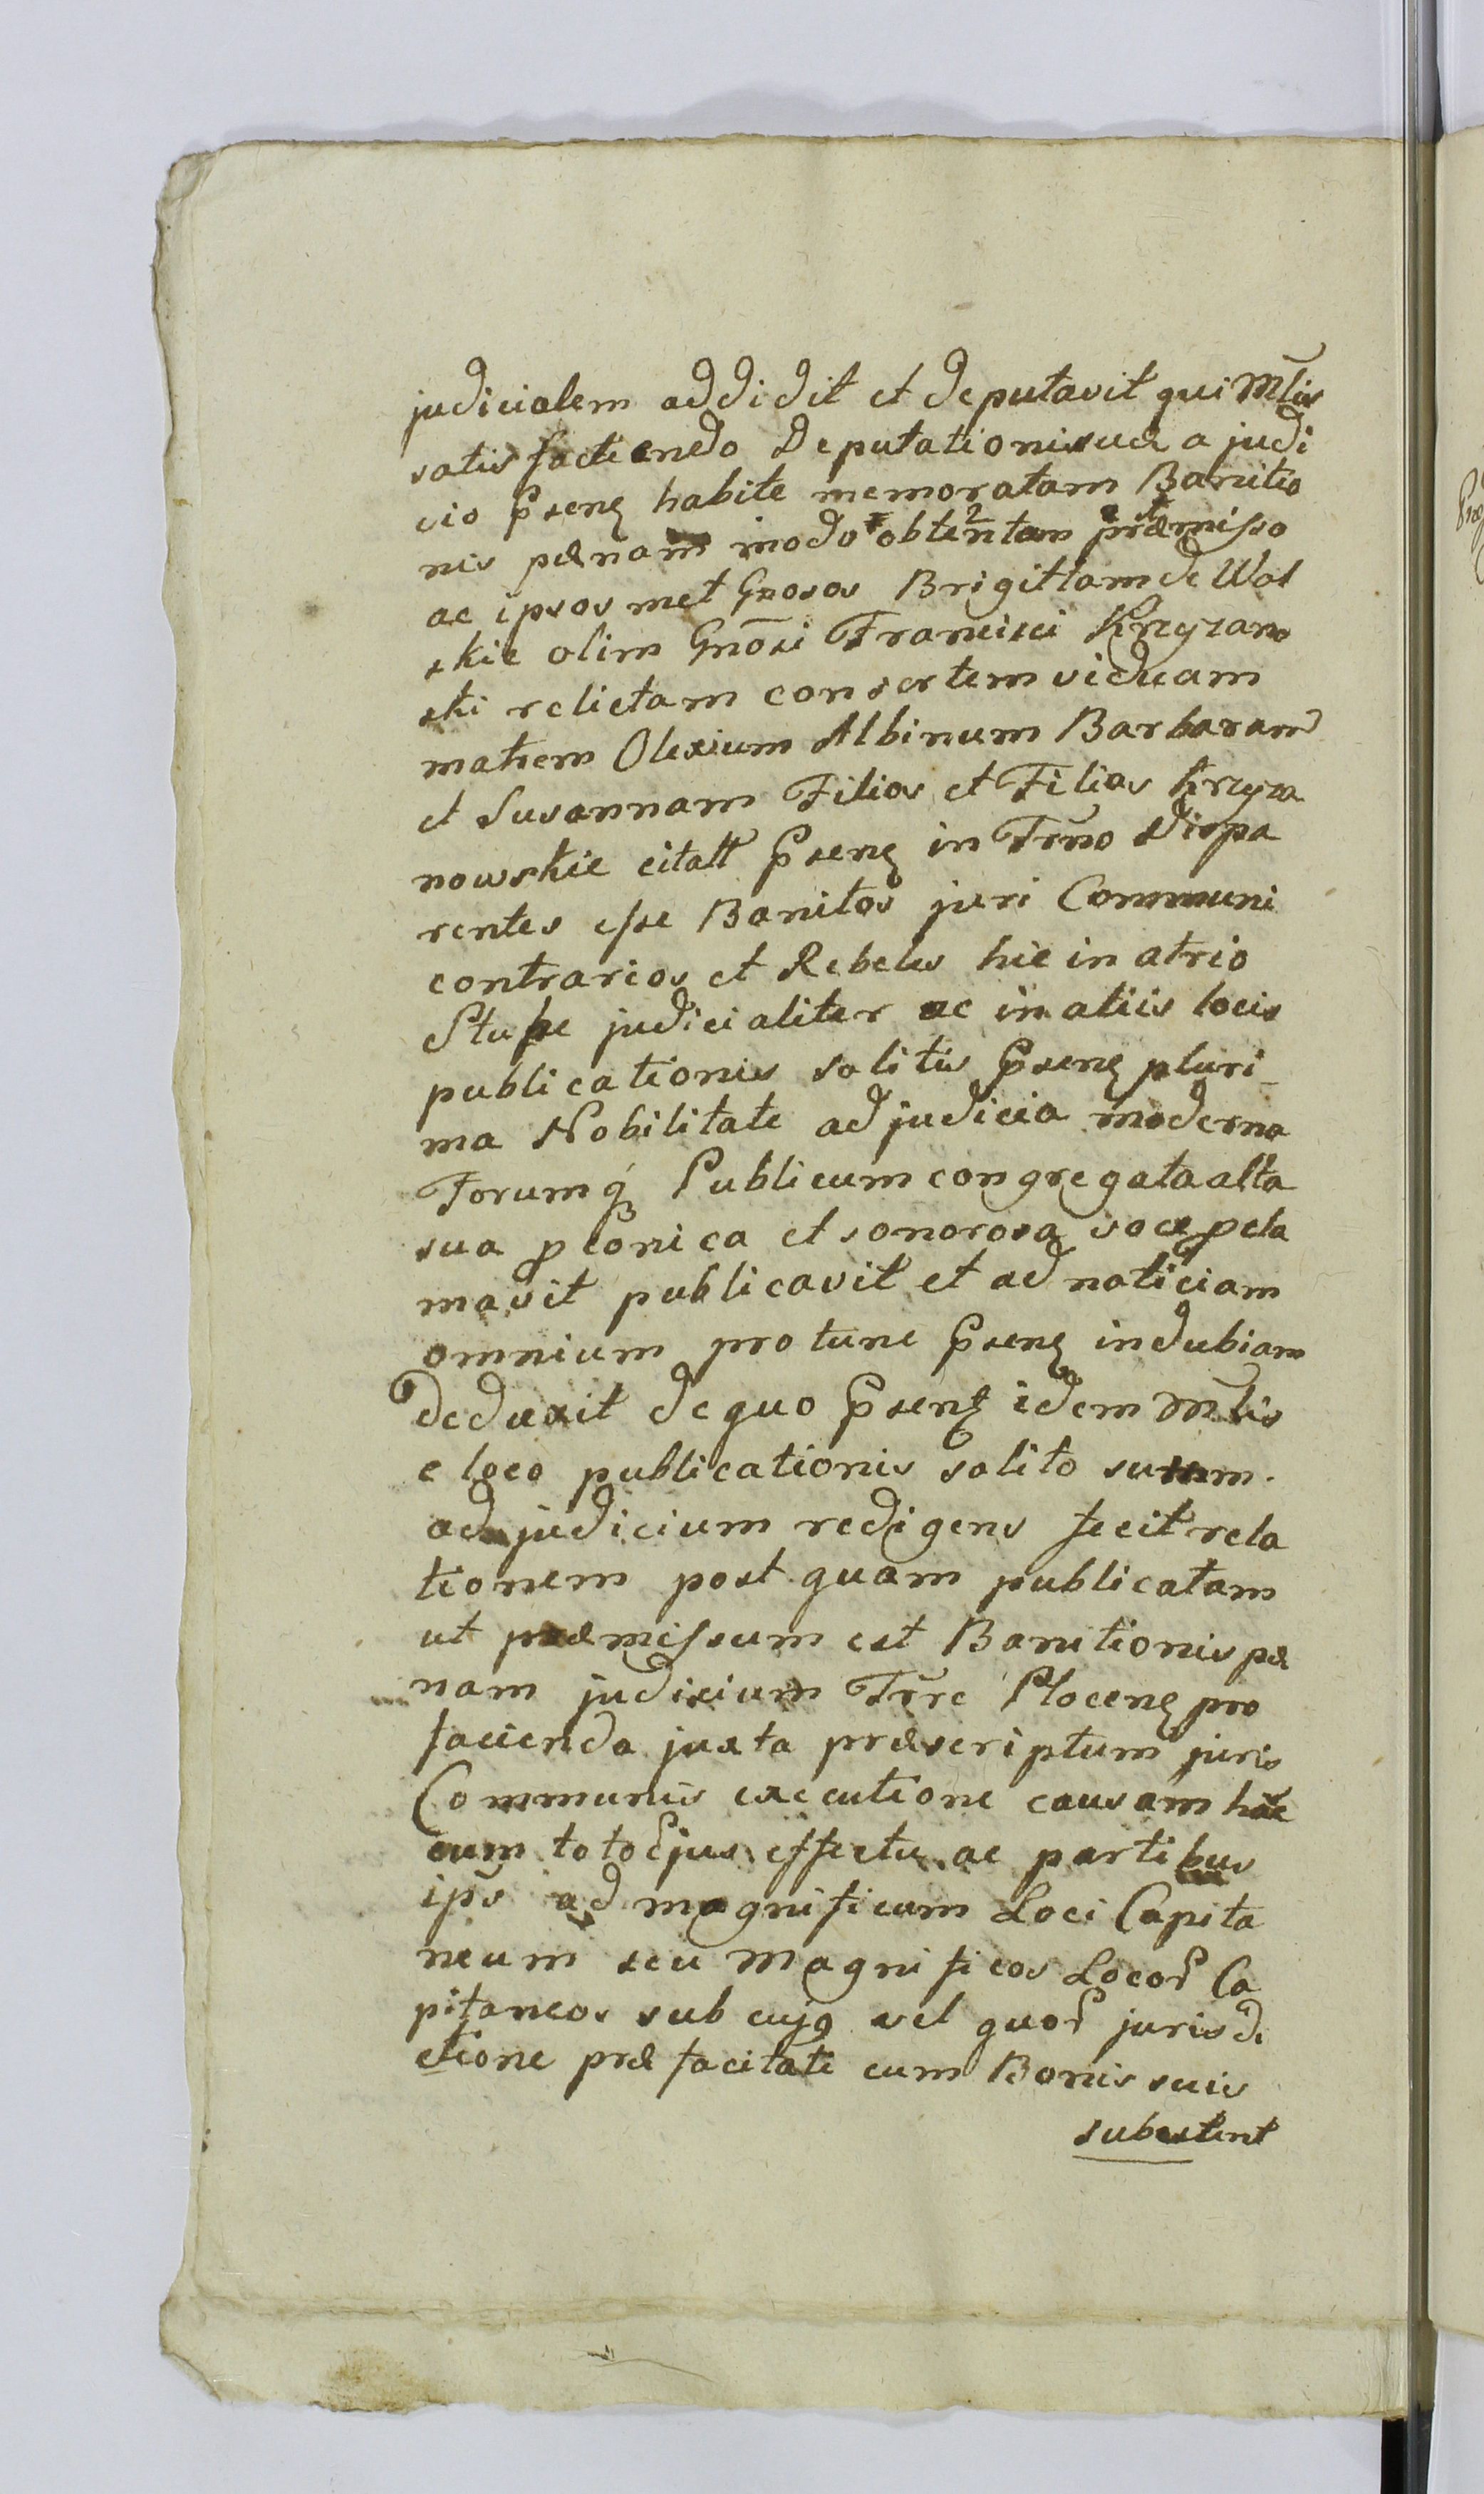 judicialem addidit et deputavit qui Mltis
satisfaciendo Deputationi suæ a judi
cio Psenz habite memoratam Banitio
nis pænam modo obtentam præmisso
ac ipsos met Gnosos Brigittam de Wol
skie olim Gnosi Francisci Krzyzano
ski relictam consortem viduam
matrem Olexium Albinum Barbaram
et Susannam Filios et Filias Krzyza
nowskie citatt Psenz in Trno Dispa
rentes esse Banitos juri Communi
contrarios et Rebeles hic in atrio
Stubæ judicialiter ac in aliis locis
publicationis solitis Psenz pluri-
ma Nobilitate ad judicia moderna
Forumq Publicum congregata alta
sua pconica et sonorosa voce pcla
mavit publicavit et ad noticiam
omnium pro tunc Psenz indubiam
deduxit de quo Psenz idem Mltis
e loco publicationis solito sursum
ad judicium redigens fecit rela
tionem post quam publicatam
ut præmissum est Banitionis pæ
nam judicium Trre Plocenz pro
facienda juxta præscriptum juris
Communis executione causam hãc
cum toto Ejus effectu ac partibus
ips ad magnificum Loci Capita
neum seu Magnificos Locor Ca
pitaneos sub cujq vel quor jurisdi
ctione præfacitati cum Bonis suis
subestent